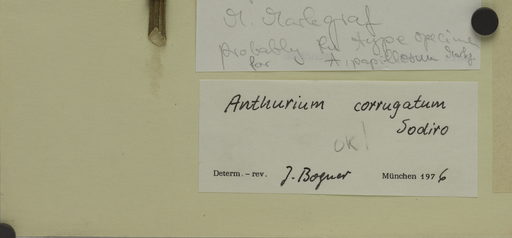 M. Markgraf
probably for type specimen
for A. papillosum Mgf
Anthurium corrugatum
Sodiro
OK!
Determ. – rev. J. Bogner München 1976